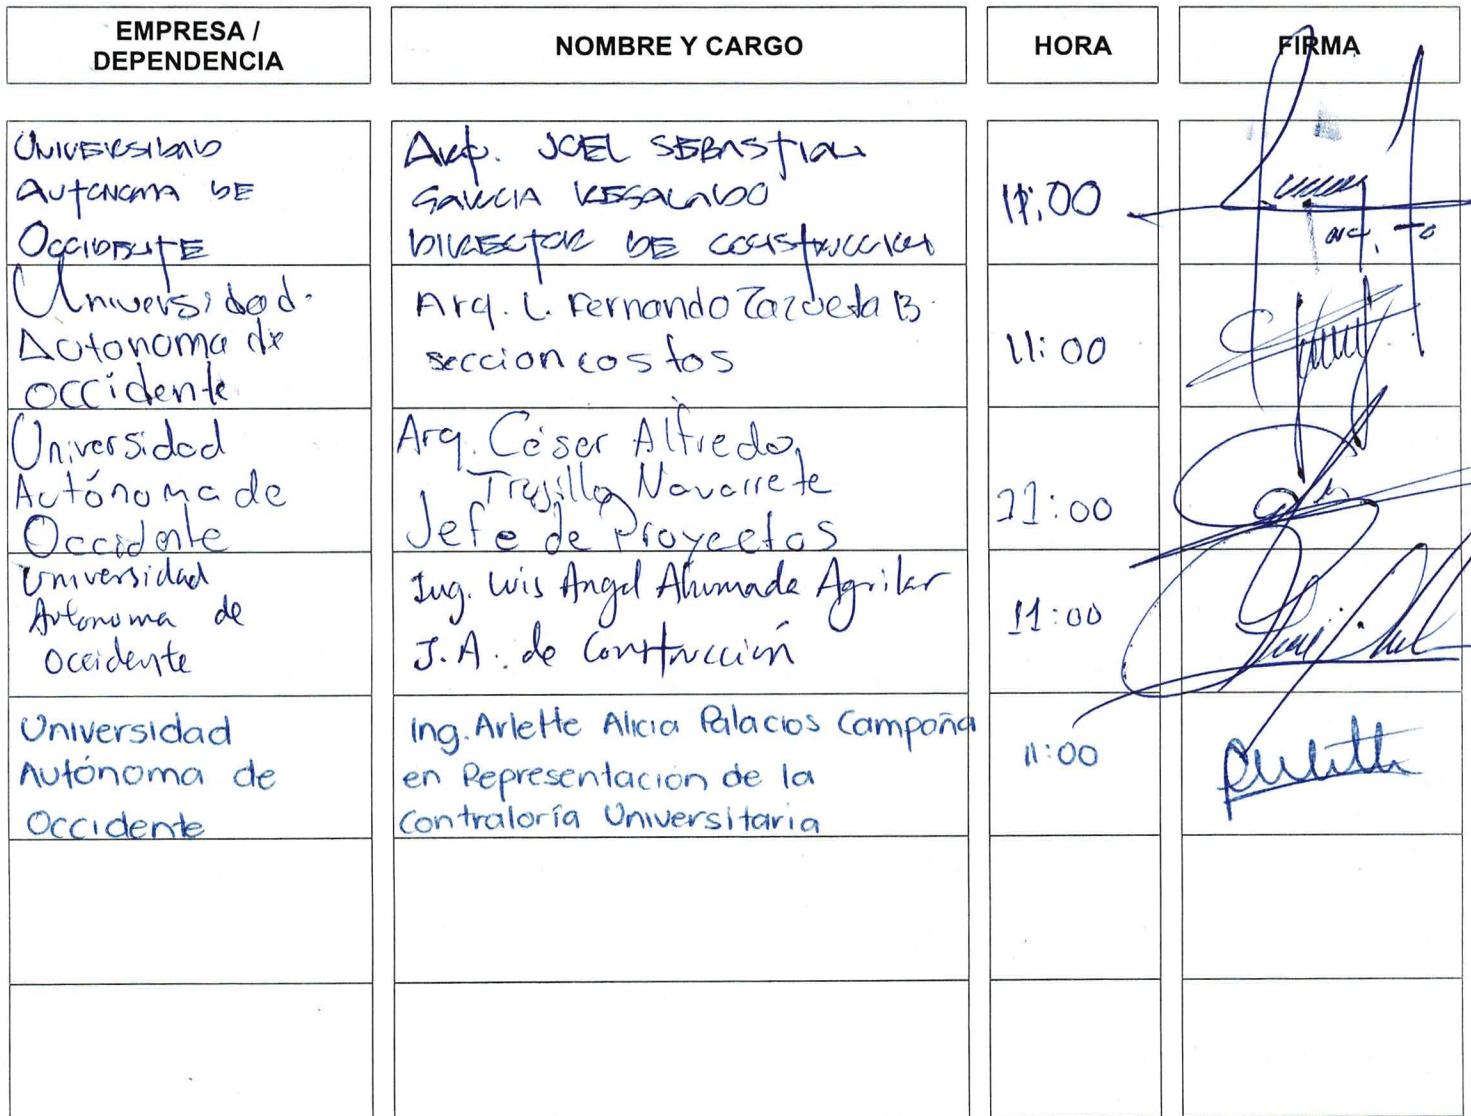 EMPRESA /
DEPENDENCIA
NOMBRE Y CARGO
HORA
FIRMA
UNIVERSIDAD
AUTONOMA DE
OCCIDENTE
Arq. JOEL SEBASTIAN
GARCIA REGALADO
DIRECTOR DE CONSTRUCCION
11:00
Universidad.
Autonoma de
occidente
Arq. L. Fernando Zazueta B.
seccion costos
11:00
Universidad
Autónoma de
Occidente
Arq. César Alfredo
Trujillo Navarrete
Jefe de Proyectos
11:00
Universidad
Autonoma de
Occidente
Ing. Luis Angel Ahumada Aguilar
J.A. de Construcción
11:00
Universidad
Autónoma de
Occidente
Ing. Arlette Alicia Palacios Campaña
en Representación de la
Contraloría Universitaria
11:00